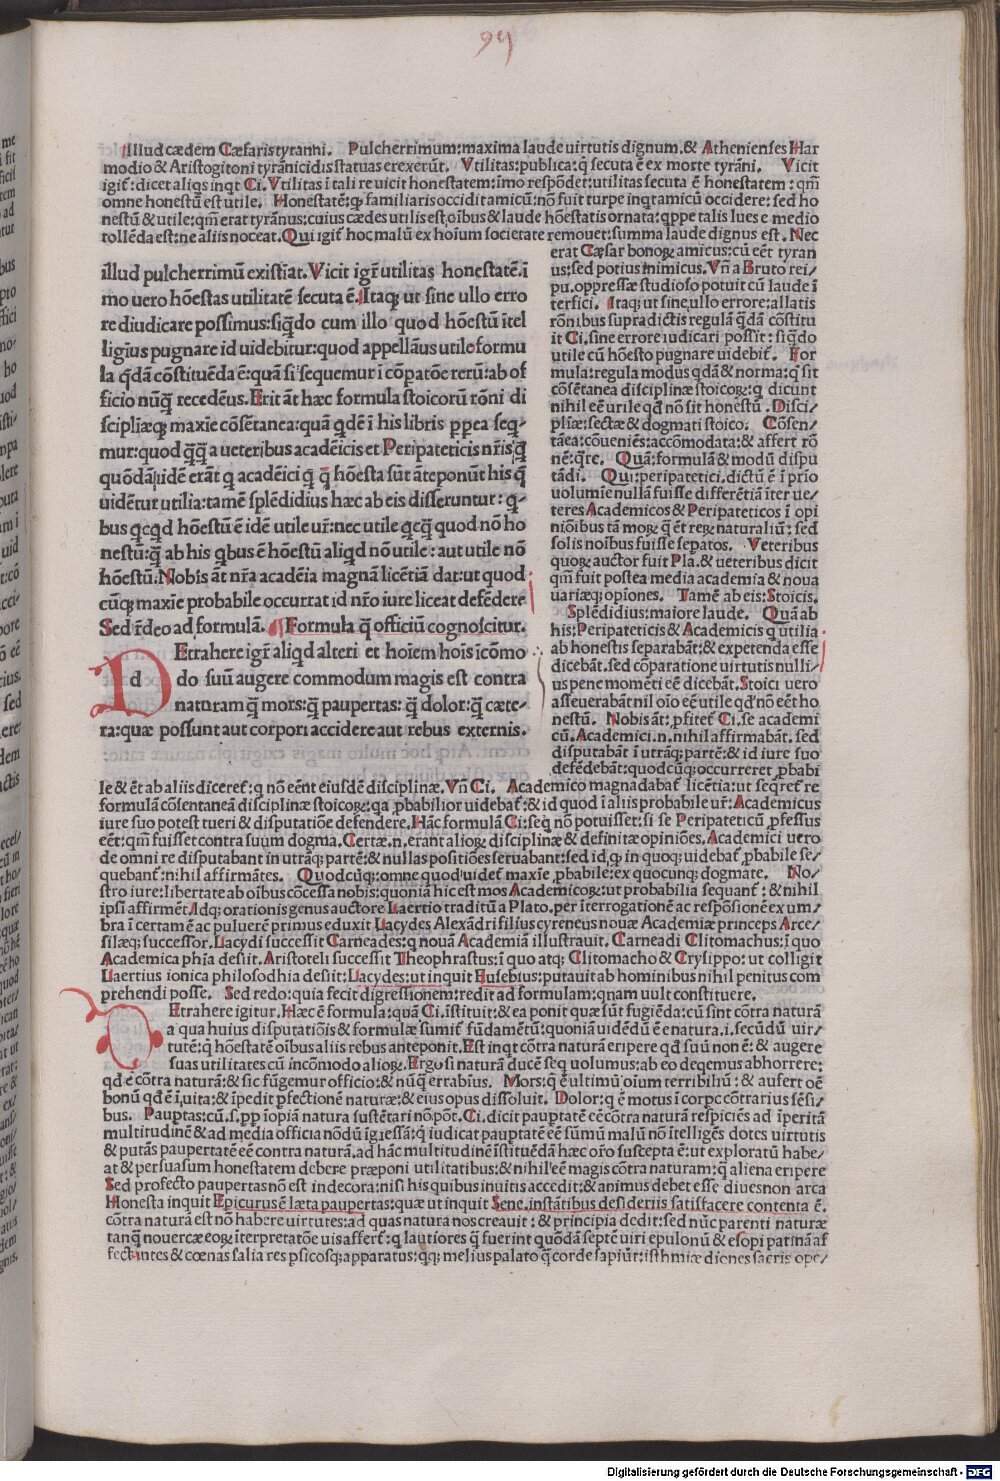 99
Illud cædem Cæsaris tyranni. Pulcherrimum: maxima laude uirtutis dignum. & Athenienses Har
modio & Aristogitoni tyrānicidis statuas erexerūt. Vtilitas: publica: q̄ secuta ē ex morte tyrāni. Vicit
igit̄: dicet aliqs inqt Ci. Vtilitas ī tali re uicit honestatem: īmo respōdet: utilitas secuta ē honestatem: qm̄
omne honestū est utile. Honestatē: qꝫ familiaris occidit amicū: nō fuit turpe inqt amicū occidere: sed ho
nestū & utile: qm̄ erat tyrānus: cuius cædes utilis est oībus & laude hōestatis ornata: qppe talis lues e medio
tollēda est: ne aliis noceat. Qui igit̄ hoc malū ex hoīum societate remouet: summa laude dignus est. Nec
illud pulcherrimū existīat. Vicit igr̄ utilitas honestatē. ī
mo uero hōestas utilitatē secuta ē. Itaqꝫ ut sine ullo erro
re diudicare possimus: siqn̄do cum illo quod hōestū ītel
ligīus pugnare id uidebitur: quod appellāus utile formu
la qdā cōstituēda ē: quā si sequemur ī cōpatōe rerū: ab of
ficio nūq̄ recedēus. Erit āt hæc formula stoicorū rōni di
sciplīæqꝫ maxīe cōsētanea: quā qdē ī his libris ꝑpea seq-
mur: quod q̄q̄ a ueteribus acadēicis et Peripateticis nr̄is q̄
quōdā idē erāt q̄ acadēici q̄ q̄ hōesta sūt āteponūt his q̄
uidētur utilia: tamē splēdidius hæc ab eis disseruntur: q-
bus qcqd hōestū ē idē utile ur̄: nec utile qcq̄ quod nō ho
nestū: q̄ ab his qbus ē hōestū aliqd nō utile: aut utile nō
hōestū. Nobis āt nr̄a acadēia magnā licētiā dat: ut quod
cūqꝫ maxīe probabile occurrat id nr̄o iure liceat defēdere
Sed r̄deo ad formulā. Formula q̄ officiū cognoscitur.
DEtrahere igr̄ aliqd alteri et hoīem hoīs īcōmo
d do suū augere commodum magis est contra
naturam q̄ mors: q̄ paupertas: q̄ dolor: q̄ cæte-
ra: quæ possunt aut corpori accidere aut rebus externis.
erat Cæsar bonoꝝ amicus: cū eēt tyran
us: sed potius inimicus. Vn̄ a Bruto rei/
pu. oppressæ studioso potuit cū laude ī
terfici. Itaqꝫ ut sine ullo errore: allatis
rōnibus supradictis regulā qdā cōstitu
it Ci. sine errore iudicari possit: siqn̄do
utile cū hōesto pugnare uidebit̄. For
mula: regula modus qdā & norma: q̄ sit
cōsētanea disciplinæ stoicoꝝ: q dicunt
nihil eē utile qd nō sit honestū. Disci/
plīæ: sectæ & dogmati stoico. Cōsen/
tāea: cōueniēs: accōmodata: & affert rō
nē: q̄re. Quā: formulā & modū dispu
tādi. Qui: peripatetici. dictū ē ī prīo
uolumīe nullā fuisse differētiā īter ue/
teres Academicos & Peripateticos ī opi
niōibus tā moꝝ q̄ ēt reꝝ naturaliū: sed
solis noībus fuisse sepatos. Veteribus
quoꝝ auctor fuit Pla. & ueteribus dicit
qm̄ fuit postea media academia & noua
uariæqꝫ opīones. Tamē ab eis: Stoicis.
Splēdidius: maiore laude. Quā ab
his: Peripateticis & Academicis q utilia
ab honestis separabāt: & expetenda esse
dicebāt. sed cōparatione uirtutis nulli/
us pene momēti eē dicebāt. Stoici uero
asseuerabāt nil oīo eē utile qd nō eēt ho
nestū. Nobis āt: ꝓfitet̄ Ci. se academi
cū. Academici. n. nihil affirmabāt. sed
disputabāt ī utrāqꝫ partē: & id iure suo
defēdebāt: quodcūqꝫ occurreret ꝓbabi
le & ēt ab aliis diceret̄: q nō eēnt eiusdē disciplinæ. Vn̄ Ci. Academico magna dabat̄ licētia: ut seqret̄ re
formulā cōsentaneā disciplinæ stoicoꝝ: qa ꝓbabilior uidebat̄: & id quod ī aliis probabile ur̄: Academicus
iure suo potest tueri & disputatiōe defendere. Hāc formulā Ci: seq nō potuisset: si se Peripateticū ꝓfessus
eēt: qm̄ fuisset contra suum dogma. Certæ. n. erant alioꝝ disciplinæ & definitæ opiniōes. Academici uero
de omni re disputabant in utrāqꝫ partē: & nullas positiōes seruabant: sed id qꝫ in quoqꝫ uidebat̄ ꝓbabile se/
quebant̄: nihil affirmātes. Quodcūqꝫ: omne quod uidet̄ maxīe ꝓbabile: ex quocunqꝫ dogmate. No/
stro iure: libertate ab oībus cōcessa nobis: quoniā hic est mos Academicoꝝ: ut probabilia sequant̄: & nihil
ipsi affirmēt Idqꝫ orationis genus auctore Laertio traditū a Plato. per īterrogationē ac respōsionē ex um/
bra ī certamē ac puluerē primus eduxit Lacydes Alexādri filius cyreneus nouæ Academiæ princeps Arce/
silæqꝫ successor. Lacydi successit Carneades: q nouā Academiā illustrauit. Carneadi Clitomachus: ī quo
Academica phīa desiit. Aristoteli successit Theophrastus: ī quo atqꝫ Clitomacho & Crysippo: ut colligit
Laertius ionica philosodhia desiit: Lacydes: ut inquit Eusebius: putauit ab hominibus nihil penitus com
prehendi posse. Sed redo: quia fecit digressionem: redit ad formulam: qnam uult constituere.
DEtrahere igitur. Hæc ē formula: quā Ci. īstituit: & ea ponit quæ sūt fugiēda: cū sint cōtra naturā
a qua huius disputatiōis & formulæ sumit̄ fūdamētū: quoniā uidēdū ē e natura. i. secūdū uir/
tutē: q̄ hōestatē oībus aliis rebus anteponit. Est inqt cōtra naturā eripere qd suū non ē: & augere
suas utilitates cū incōmodo alioꝝ. Ergo si naturā ducē seq uolumus: ab eo deqemus abhorrere:
qd ē cōtra naturā: & sic fūgemur officio: & nūq̄ errabīus. Mors: q̄ ē ultimū oium terribiliū: & aufert oē
bonū qd ē ī uita: & īpedit ꝑfectionē naturæ: & eius opus dissoluit. Dolor: q ē motus ī corpe cōtrarius sēsi/
bus. Pauptas: cū. s. ꝓꝑ īopiā natura sustētari nō pōt. Ci. dicit pauptatē eē cōtra naturā respiciēs ad īperitā
multitudinē & ad media officia nōdū īgressā: q iudicat pauptatē eē sūmū malū nō ītelligēs dotes uirtutis
& putās paupertatē eē contra naturā. ad hāc multitudinē īstituēdā hæc oro suscepta ē: ut exploratū habe/
at & persuasum honestatem debere præponi utilitatibus: & nihil eē magis cōtra naturam: q̄ aliena eripere
Sed profecto paupertas non est indecora: nisi his quibus inuitis accedit: & animus debet esse diues non arca
Honesta inquit Epicurus ē læta paupertas: quæ ut inquit Sene. instātibus desideriis satisfacere contenta ē.
cōtra naturā est nō habere uirtutes: ad quas natura nos creauit: & principia dedit: sed nūc parenti naturæ
tanq̄ nouercæ eoꝝ īterpretatōe uis affert̄: q lautiores q̄ fuerint quōdā septē uiri epulonū & esopi patinā af
fectantes & cœnas salia res psicosqꝫ apparatus: qqꝫ melius palato q̄ corde sapiūt: isthmiæ diones sacris ope/
Digitalisierung gefördert durch die Deutsche Forschungsgemeinschaft - DFG